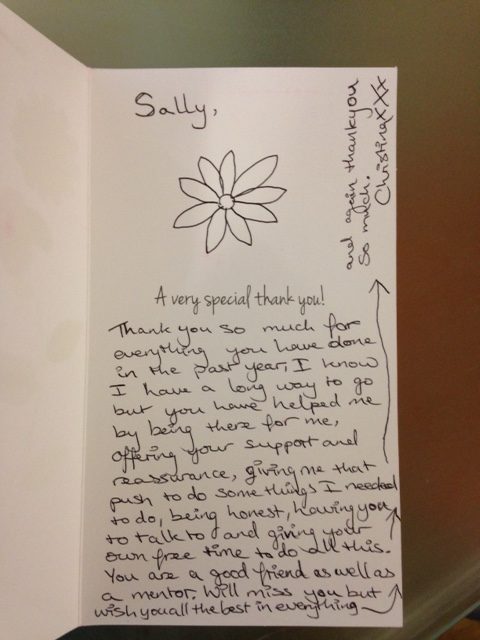 Sally,
A very special thank you!
Thank you so much for
everything you have done
in the past year, I know
I have a long way to go
but you have helped me
by being there for me,
offering your support and
reassurance, giving me that
push to do some things I needed
to do, being honest, having you
to talk to and giving your
own free time to do all this.
You are a good friend as well as
a mentor. Will miss you but
wish you all the best in everything
and again thankyou
so much.
Christina xxx